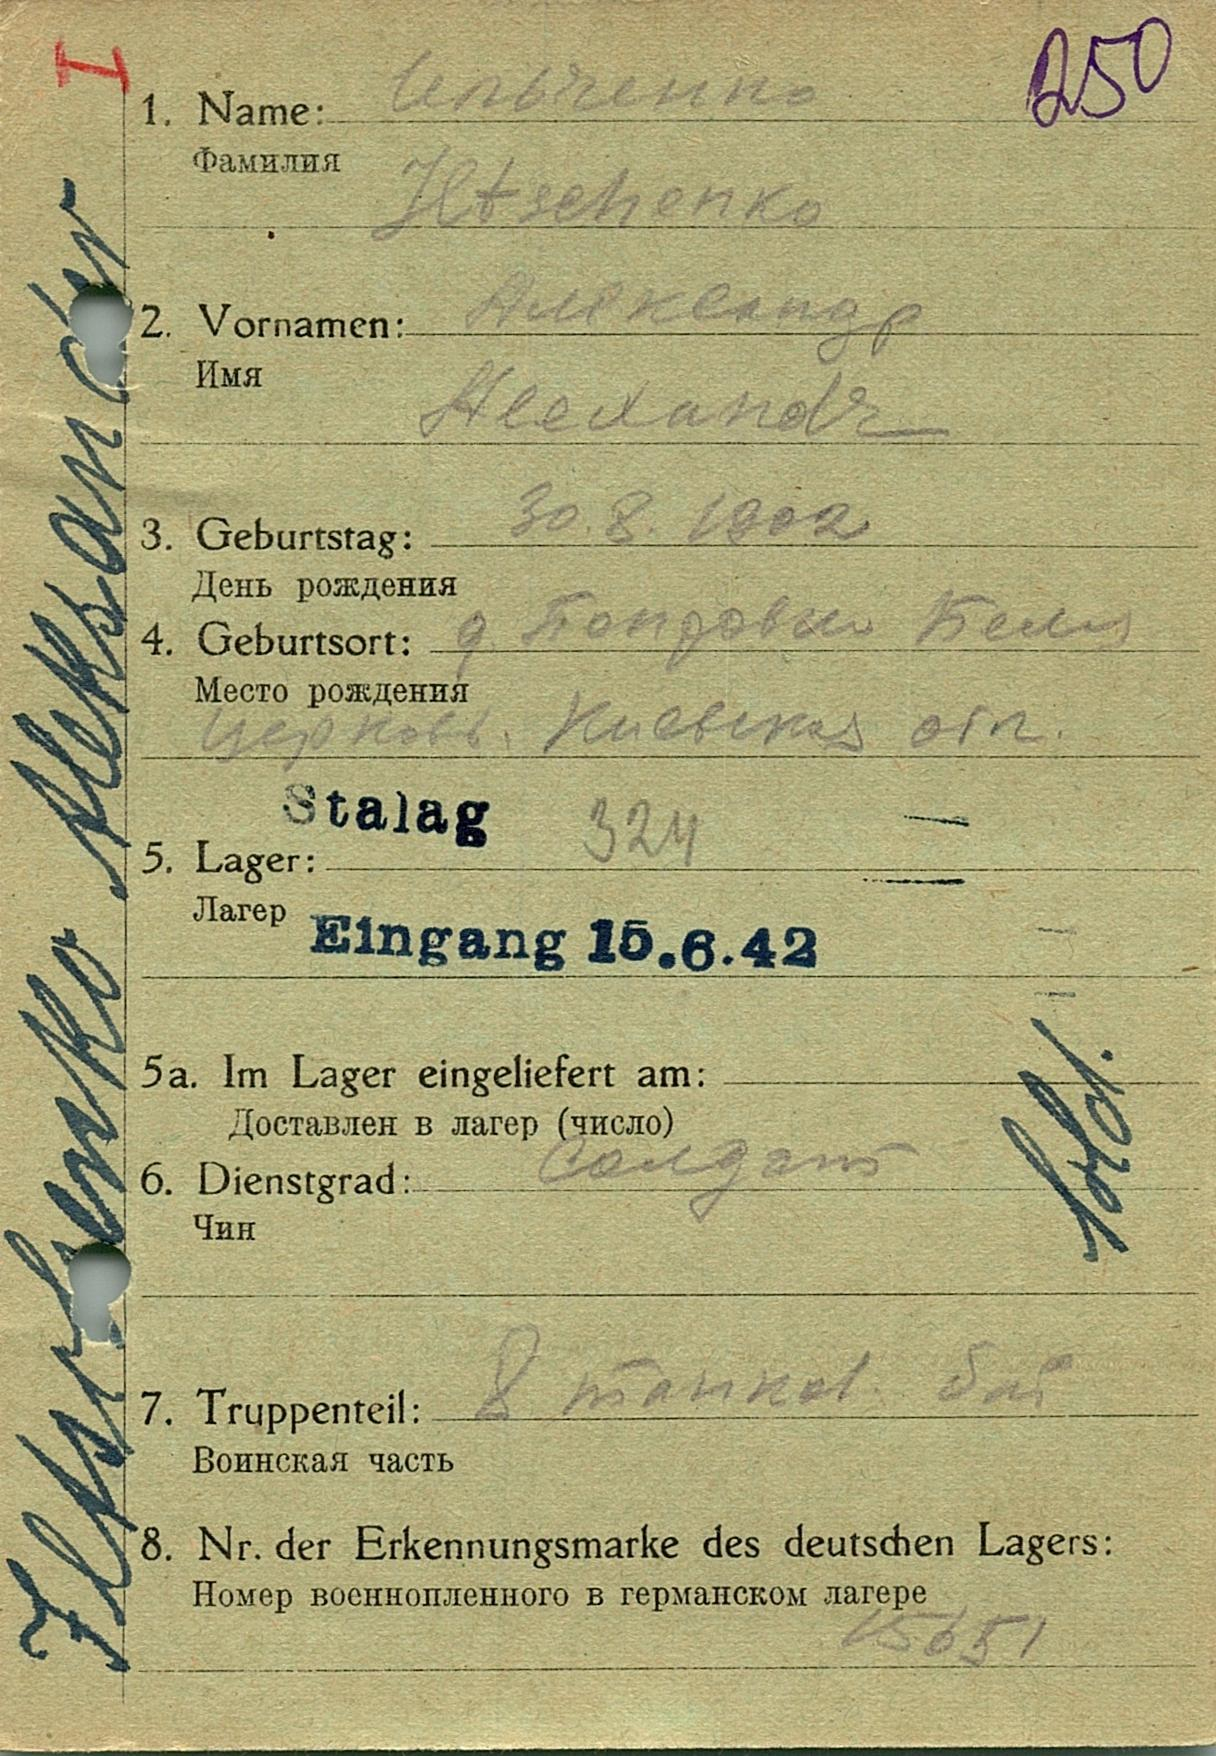 I
250
1. Name: Ильченко
Фамилия
Iltschenko
2. Vornamen: Александр
Имя
Alexandr
3. Geburtstag: 30.8.1902
День рождения
4. Geburtsort: д.
Место рождения
Церковь. Киевская обл.
Stalag 324
5. Lager:
Лагер
Eingang 15.6.42
5a. Im Lager eingeliefert am:
Доставлен в лагер (число)
6. Dienstgrad: Солдат
Чин
Sold.
7. Truppenteil: 8 танков. бат
Воинская часть
8. Nr. der Erkennungsmarke des deutschen Lagers:
Номер военнопленного в германском лагере
15651
Iltschenko Aleksander